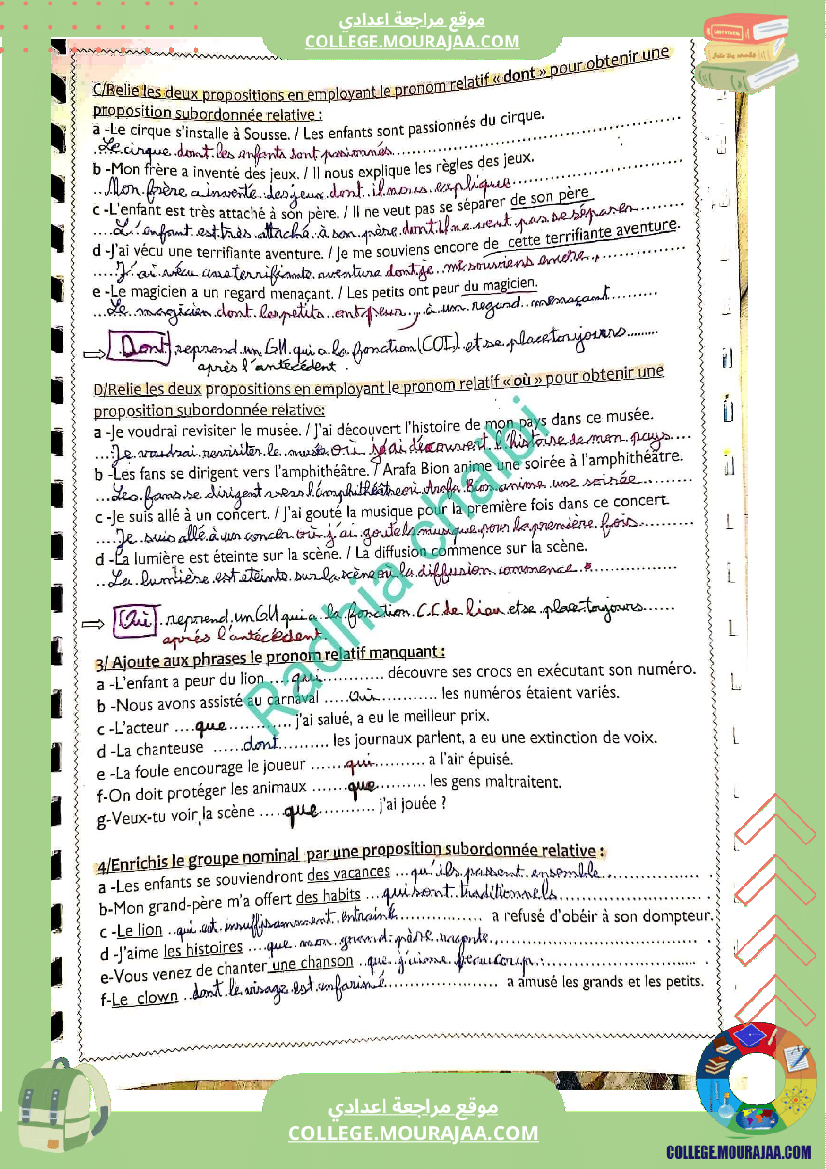 موقع مراجعة اعدادي
COLLEGE.MOURAJAA.COM
C/Relie les deux propositions en employant le pronom relatif « dont » pour obtenir une
proposition subordonnée relative :
a -Le cirque s'installe à Sousse. / Les enfants sont passionnés du cirque.
Le cirque dont les enfants sont passionnés
b -Mon frère a inventé des jeux. / Il nous explique les règles des jeux.
Mon frère a inventé des jeux dont il nous explique
c -L'enfant est très attaché à son père. / Il ne veut pas se séparer de son père
L'enfant est très attaché à son père dont il ne veut pas se séparer
d -J'ai vécu une terrifiante aventure. / Je me souviens encore de cette terrifiante aventure.
J'ai vécu une terrifiante aventure dont je me souviens encore.
e -Le magicien a un regard menaçant. / Les petits ont peur du magicien.
Le magicien dont les petits ont peur, a un regard menaçant
Dont reprend un GN qui a la fonction (COI) et se place toujours
après l'antécédent.
D/Relie les deux propositions en employant le pronom relatif « où » pour obtenir une
proposition subordonnée relative:
a -Je voudrai revisiter le musée. / J'ai découvert l'histoire de mon pays dans ce musée.
Je voudrai revisiter le musée où j'ai découvert l'histoire de mon pays
b -Les fans se dirigent vers l'amphithéâtre. / Arafa Bion anime une soirée à l'amphithéâtre.
Les fans se dirigent vers l'amphithéâtre où Arafa Bion anime une soirée
c -Je suis allé à un concert. / J'ai gouté la musique pour la première fois dans ce concert.
Je suis allé à un concer où j'ai goute la musique pour la première fois
d -La lumière est éteinte sur la scène. / La diffusion commence sur la scène.
La lumière est éteinte sur la scène où la diffusion commence.
Où reprend un GN qui a la fonction C.C de lieu et se place toujours
après l'antécédent.
3/ Ajoute aux phrases le pronom relatif manquant :
a -L'enfant a peur du lion ....qui............ découvre ses crocs en exécutant son numéro.
b -Nous avons assisté au carnaval .....où........... les numéros étaient variés.
c -L'acteur ....que............ j'ai salué, a eu le meilleur prix.
d -La chanteuse ......dont......... les journaux parlent, a eu une extinction de voix.
e -La foule encourage le joueur ......qui......... a l'air épuisé.
f-On doit protéger les animaux ......que......... les gens maltraitent.
g-Veux-tu voir la scène .....que.......... j'ai jouée ?
4/Enrichis le groupe nominal par une proposition subordonnée relative :
a -Les enfants se souviendront des vacances ...qu'ils passent ensemble
b-Mon grand-père m'a offert des habits ...qui sont traditionnels
c -Le lion qui est insuffisamment entraîné a refusé d'obéir à son dompteur.
d -J'aime les histoires ....que mon grand-père raconte.
e-Vous venez de chanter une chanson ..que j'aime beaucoup.
f-Le clown ..dont le visage est enfariné a amusé les grands et les petits.
Radhia chalbi
موقع مراجعة اعدادي
COLLEGE.MOURAJAA.COM
COLLEGE.MOURAJAA.COM